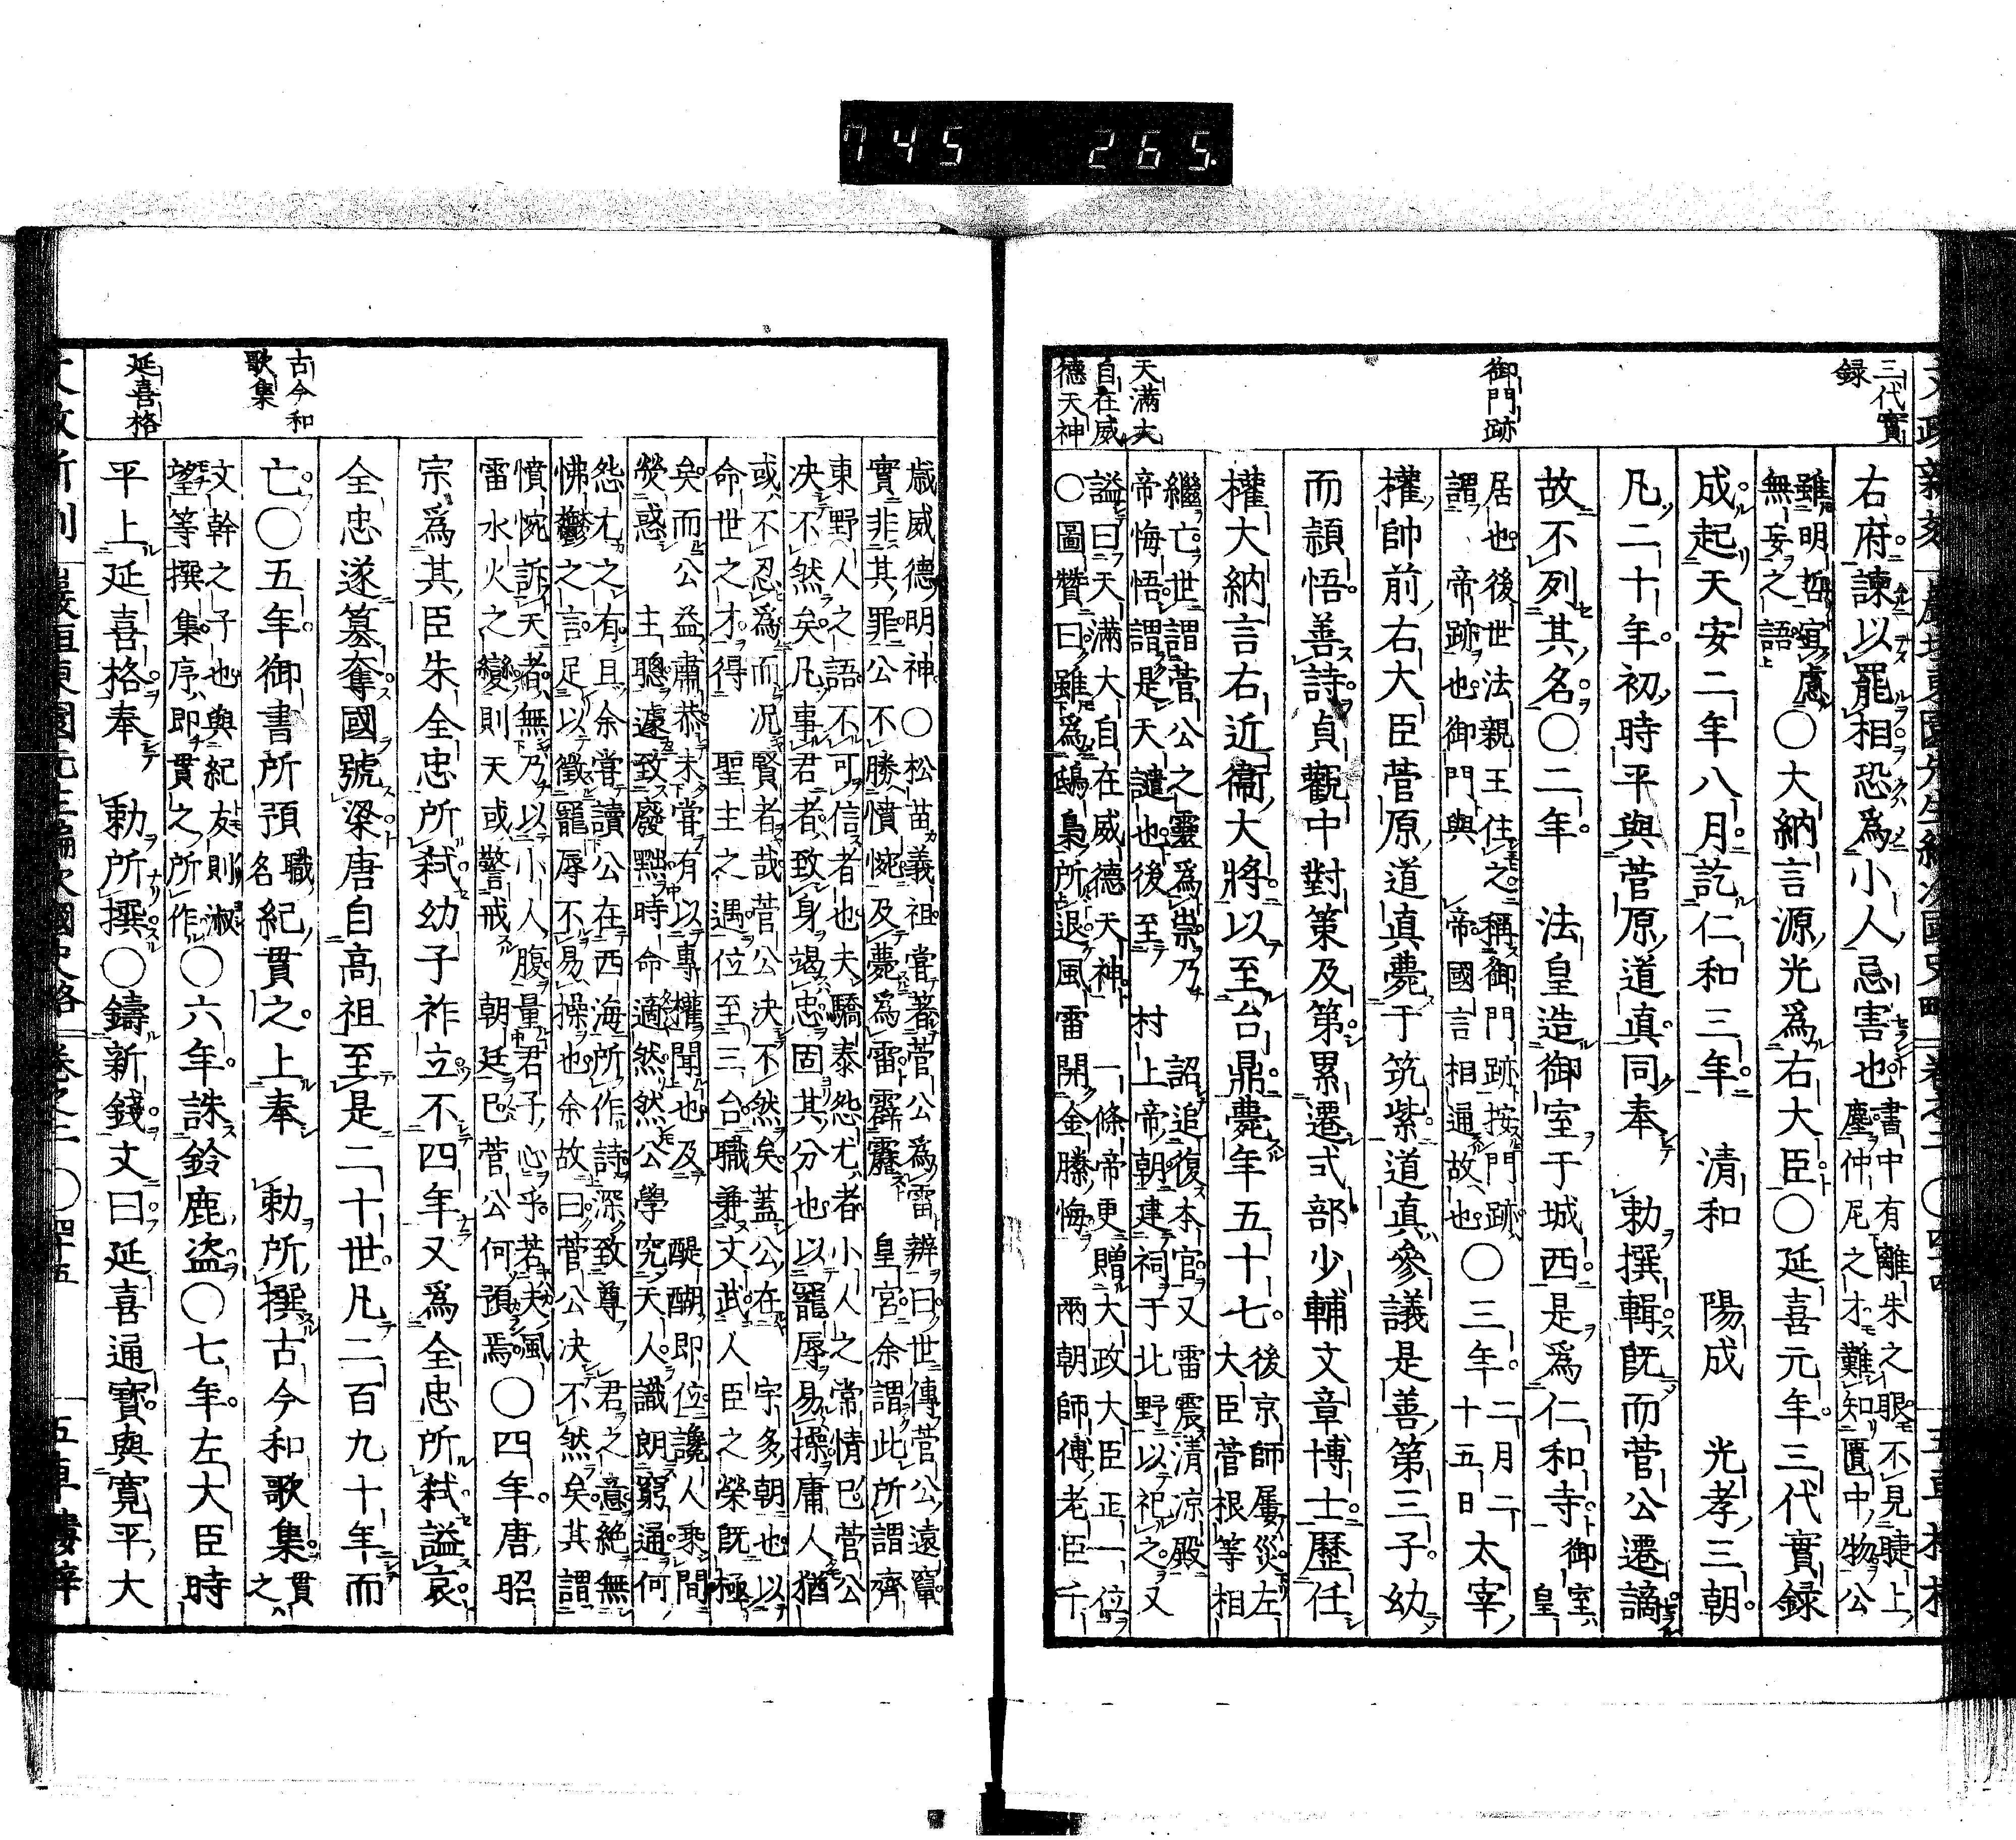 745 265.
三代實
録
御門跡
天滿大
自在威
德天神
右府諫以罷相恐爲小人忌害也
書中有離朱之眼不見睫上
塵仲尼之才難知匱中物公
雖明哲
無妄之語
○大納言源光爲右大臣○延喜元年三代實録
成起天安二年八月訖仁和三年 清和 陽成 光孝三朝
凡二十年初時平與菅原道真同奉 勅撰輯旣而菅公遷謫
故不列其名○二年 法皇造御室于城西是爲仁和寺
御室
皇
居也後世法親王住之稱御門跡按門跡
謂 帝跡也御門與 帝國言相通故也
○三年
二月二
十五日
太宰
權帥前右大臣菅原道真薨于筑紫道真參議是善第三子幼
而頴悟善詩貞觀中對策及第累遷式部少輔文章博士歷任
權大納言右近衞大將以至台鼎薨年五十七
後京師屢災左
大臣菅根等相
繼亡世謂菅公之靈爲祟乃 詔追復本官又雷震清凉殿
帝悔悟謂是天譴也後至 村上帝朝建祠于北野以祀之又
謚曰天滿大自在威德天神 一條帝更贈大政大臣正一位
○圖贊曰雖爲鴟梟所退風雷開金縢悔 兩朝師傅老臣千
古今和
歌集
延喜格
歳威德明神○松苗義祖嘗著菅公爲雷辨曰世傳菅公遠竄
實非其罪公不勝憤惋及薨爲雷霹靂 皇宮余謂此所謂齊
東野人之語不可信者也夫驕泰怨尤者小人之常情巳菅公
决不然矣凡事君者致身竭忠固其分也以寵辱易操庸人猶
或不忍爲而况賢者哉菅公决不然矣蓋公在 宇多朝也以
命世之才得 聖主之遇位至三台職兼文武人臣之榮旣極
矣而公益肅恭未嘗有以專權聞也及 醍醐即位讒人乘間
熒惑 主聰遽致廢黜時命適然然公學究天人識朗窮通何
怨尤之有且余嘗讀公在西海所作詩深致尊 君之意絶無
怫鬱之言足以徵寵辱不易操也余故曰菅公决不然矣其謂
憤惋訴天者無乃以小人腹量君子心乎若夫風
雷水火之變則天或警戒 朝廷巳菅公何預焉
○四年唐昭
宗爲其臣朱全忠所弑幼子祚立不四年又爲全忠所弑謚哀
全忠遂簒奪國號梁唐自高祖至是二十世凡二百九十年而
亡○五年御書所預
職
名
紀貫之上奉 勅所撰古今和歌集
貫
之
文幹之子也與紀友則淑
望等撰集序即貫之所作
○六年誅鈴鹿盗○七年左大臣時
平上延喜格奉 勅所撰○鑄新錢文曰延喜通寶與寛平大